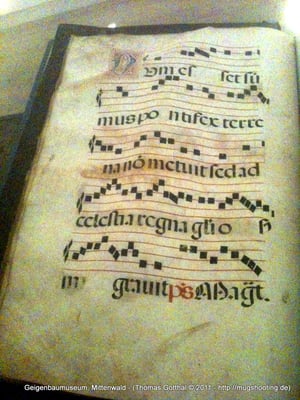 Dum es set sū
mus po ntifex terre
na nō metuit sed ad
celestia regna glīo
grauit ps̄
Geigenbaumuseum, Mittenwald - (Thomas Gotthal © 2011 - http://mugshooting.de)